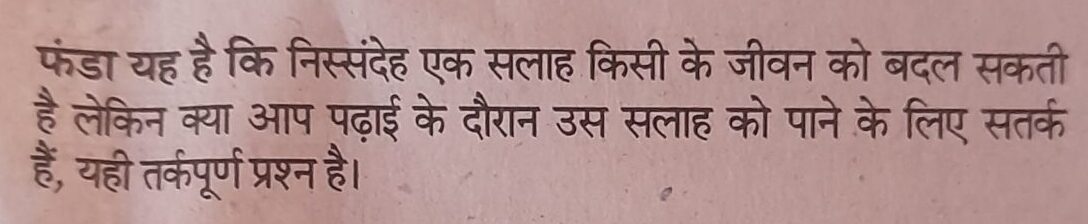 फंडा यह है कि निस्संदेह एक सलाह किसी के जीवन को बदल सकती
है लेकिन क्या आप पढ़ाई के दौरान उस सलाह को पाने के लिए सतर्क
हैं, यही तर्कपूर्ण प्रश्न है।